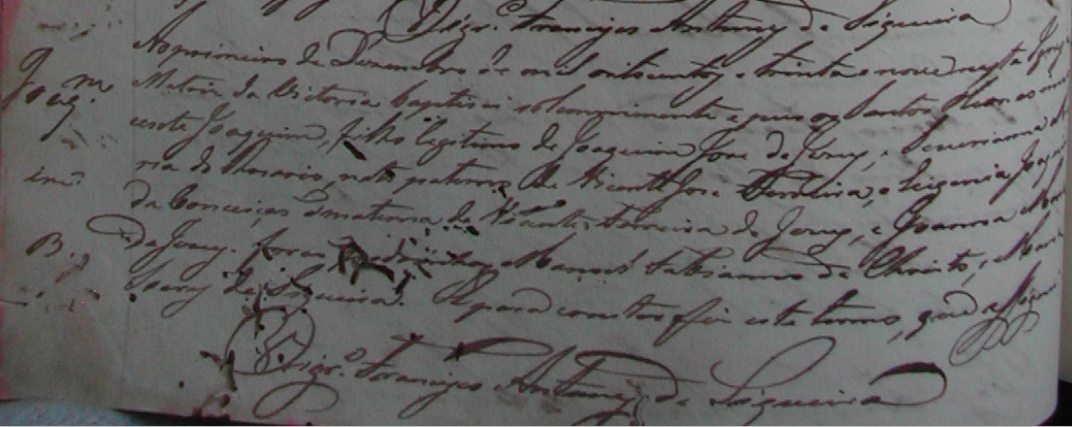 Vigr.º Francisco Antonio de Siqueira
Ao primeiro de Dezembro de mil oitocentos e trinta e nove nesta Igreja
Matriz da Victoria baptisei solemnemente e puis os Santos Oleos ao inno
cente Joaquim, filho legitimo de Joaquim Jose de Jesus, e
ria do Rosario, neto paterno de Vicente Jose Ferreira, e Eugenia Joaquina
da Conceição e materno de Vicente Ferreira de Jesus, e Joanna Maria
de Jesus. Foram Padrinhos Manoel Fabiano de Christo, e Maria
de Siqueira. E para constar fiz este termo, que assignei
Vigr.º Francisco Antonio de Siqueira
Joaq.m
inn.e
B.